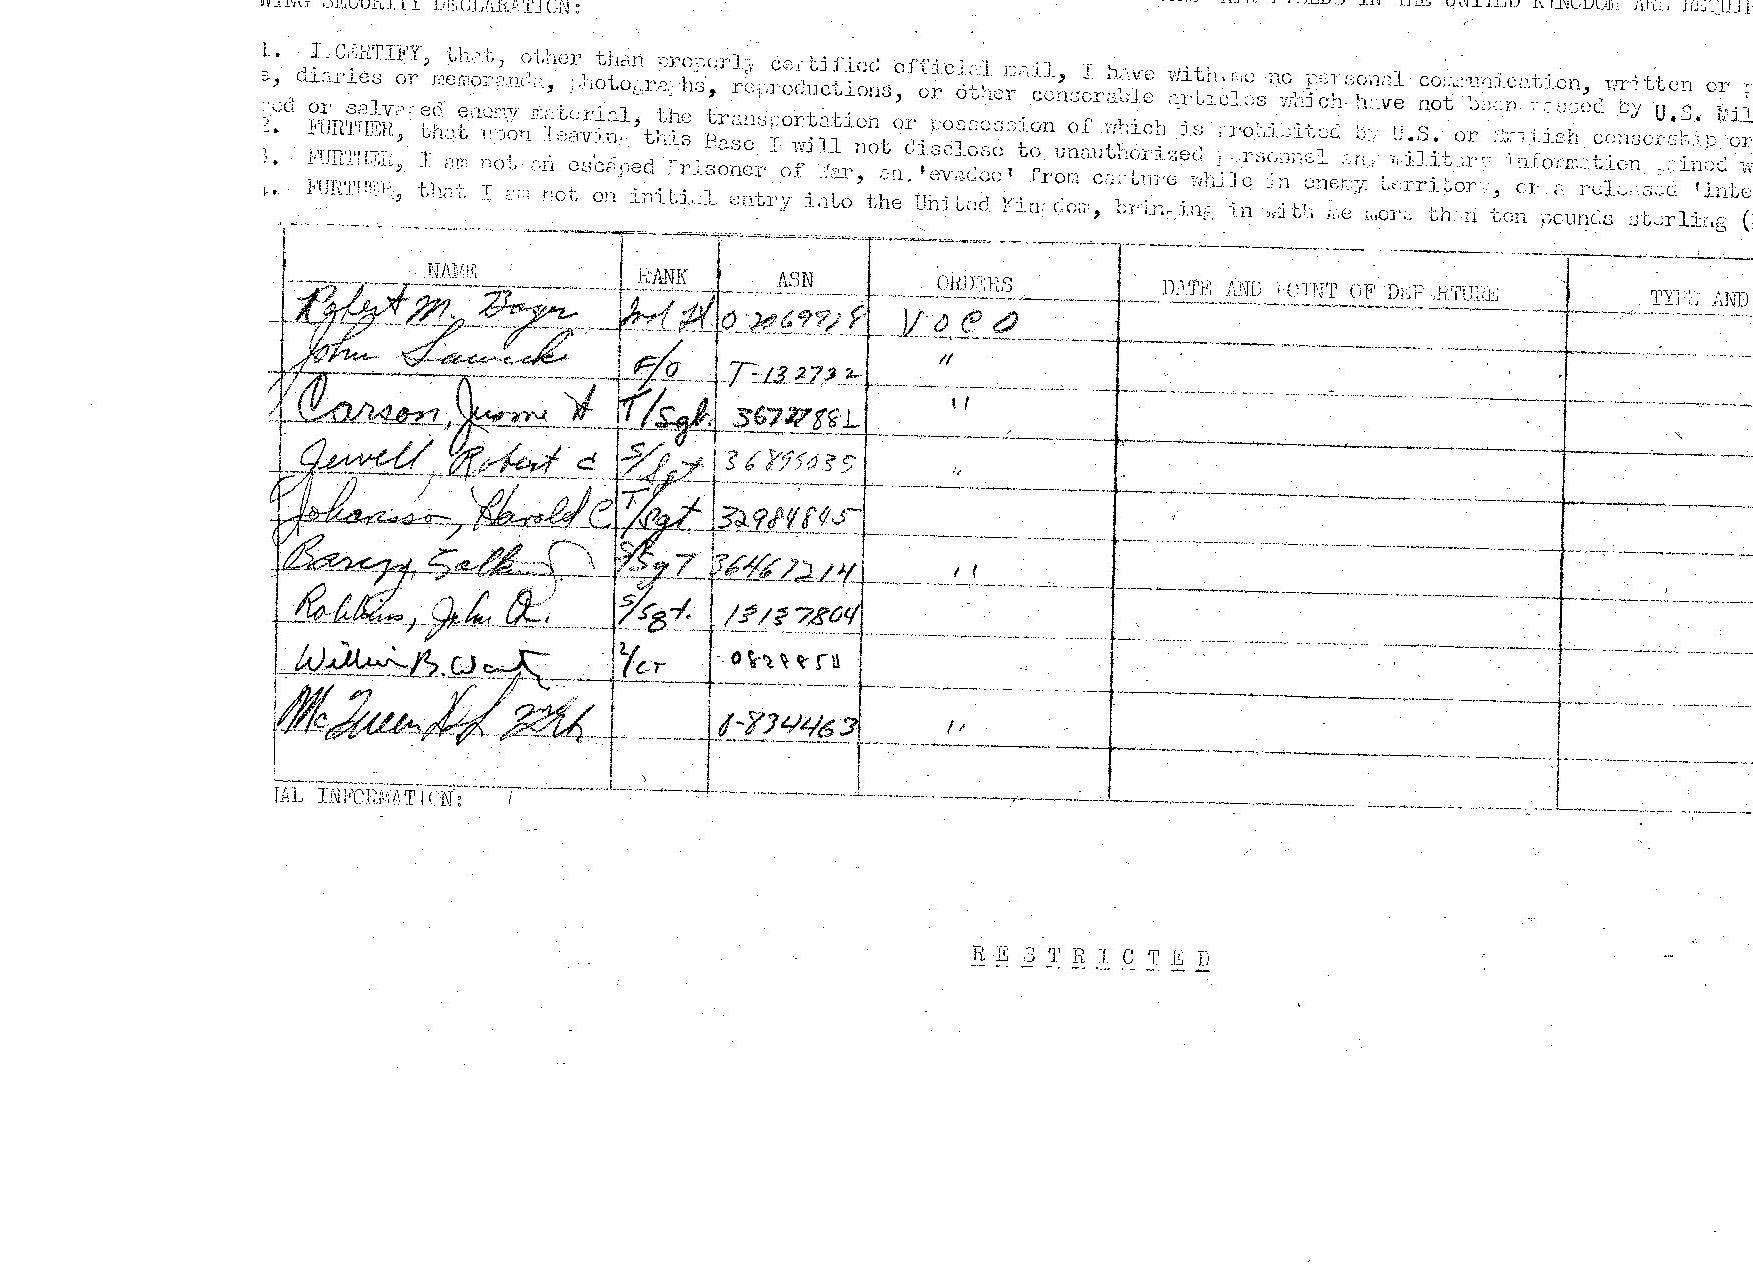 WING SECURITY DECLARATION: IN THE UNITED KINGDOM ARE
1. I CERTIFY, that, other than properly certified official mail, I have with me no personal communication, written or
s, diaries or memoranda, photographs, reproductions, or other censorable articles which have not been passed by U.S. Mil
red or salvaged enemy material, the transportation or possession of which is prohibited by U.S. or British censorship or
2. FURTHER, that upon leaving this Base I will not disclose to unauthorized personnel any military information gained w
3. FURTHER, I am not an escaped Prisoner of War, an 'evadee' from capture while in enemy territory, or a released 'inte
4. FURTHER, that I am not on initial entry into the United Kingdom, bringing in with me more than ten pounds sterling (
NAME RANK ASN ORDERS DATE AND POINT OF DEPARTURE TYPE AND
Robert M. 2nd Lt V O C O
John F/O T-132732 "
Carson, Jerome H T/Sgt. "
Jewell, Robert C S/Sgt 36895035 "
Johansson, Harold C T/Sgt 32984845
S/Sgt 36467214 "
Robbins, John Q. S/Sgt. 13137804
B. 2/LT
McQueen 2nd Lt 0-834463 "
IAL INFORMATION:
RESTRICTED